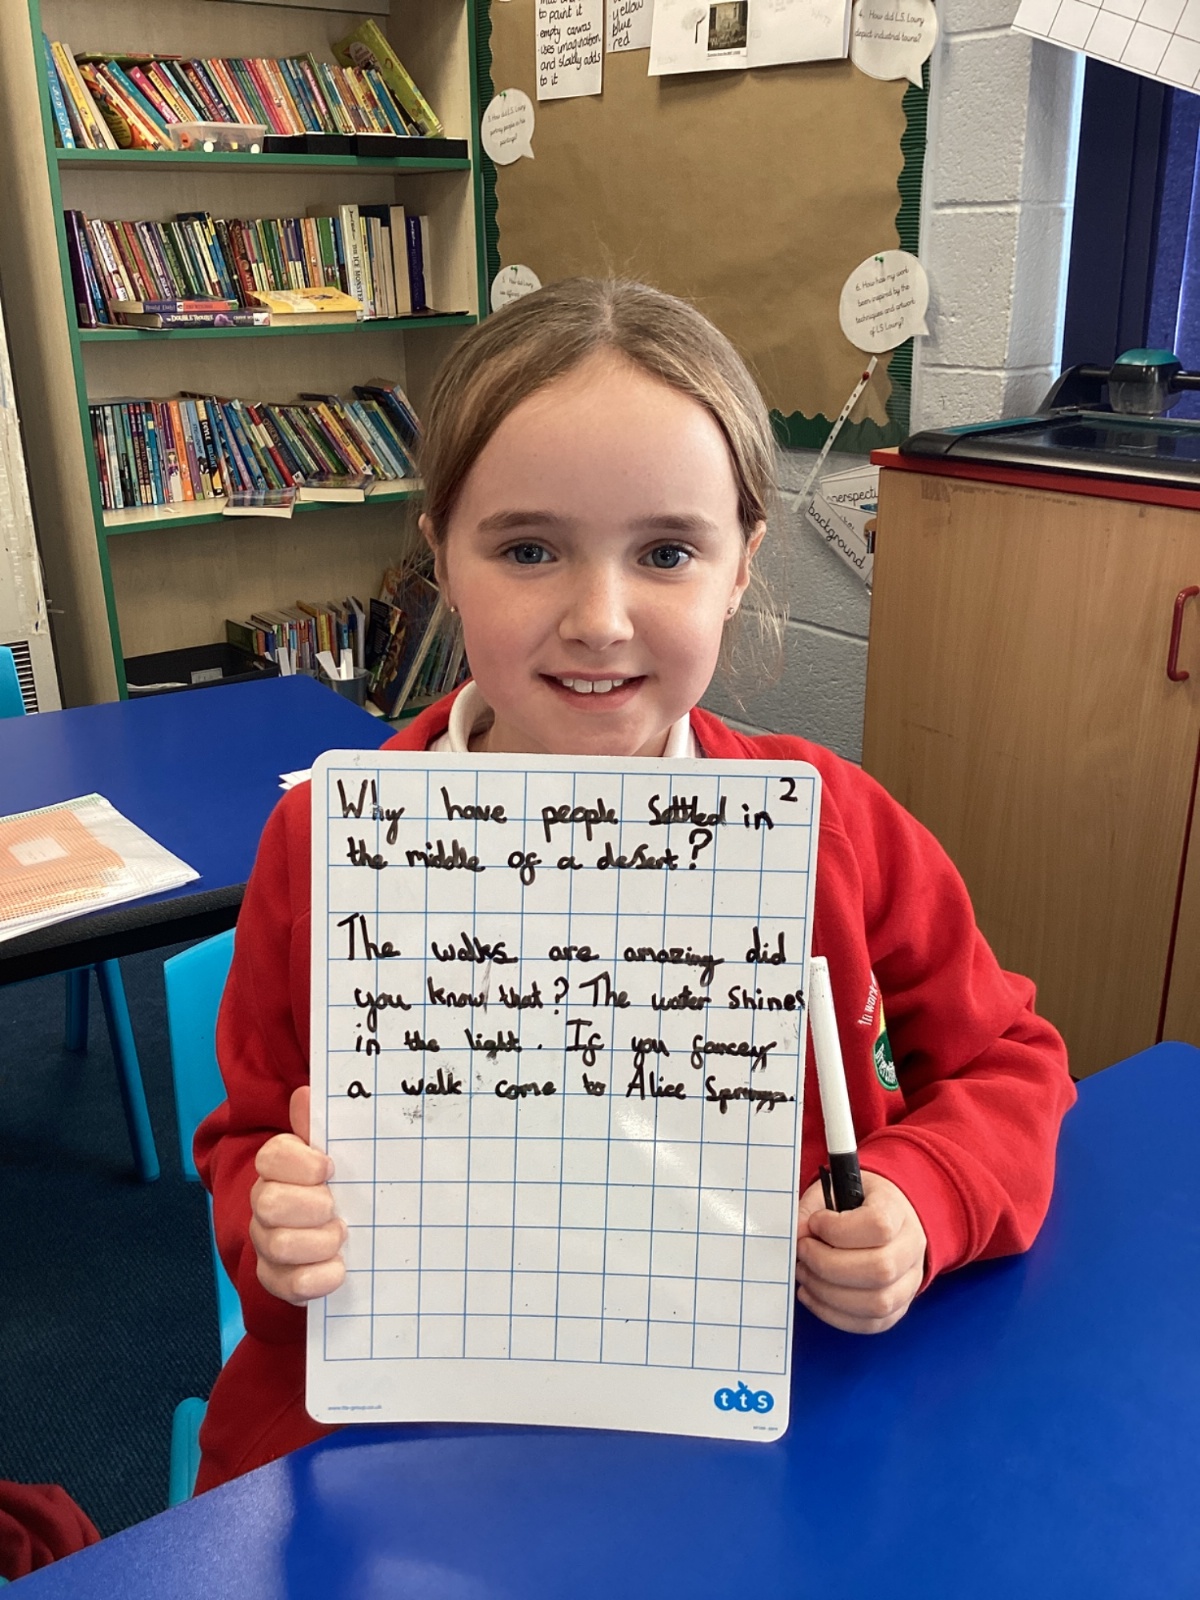 to paint it
empty canvas
uses imagination
and slowly adds
to it
yellow
blue
red
4. How did L.S. Lowry
depict industrial towns?
6. How has my work
been inspired by the
techniques and artwork
of L.S. Lowry?
background
THE ICE MONSTER
Why have people settled in 2
the middle of a desert?
The walks are amazing did
you know that? The water shines
in the light. If you fancey
a walk come to Alice Springs.
tts
www.tts-group.co.uk